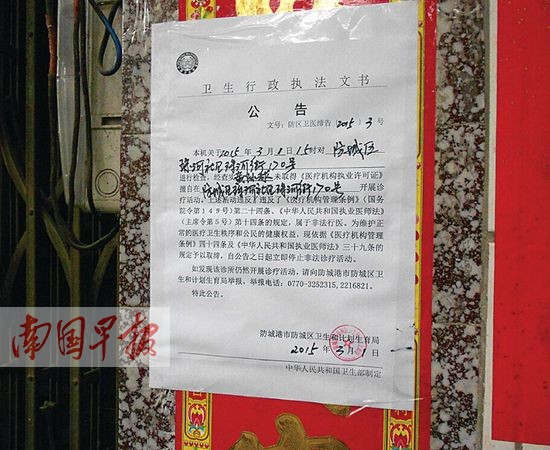 卫生行政执法文书
公告
文号：防区卫医缔告〔2015〕3号
本机关于2015年3月1日15时对 防城区
珠河社区珠河街170号
进行检查，经查实 未取得《医疗机构执业许可证》
擅自在 防城区珠河社区珠河街170号 开展诊
疗活动。上述活动违反了违反了《医疗机构管理条例》（国务
院令第149号）第二十四条、《中华人民共和国执业医师法》
（主席令第5号）第十四条的规定，属于非法行医。为维护正
常的医疗卫生秩序和公民的健康权益，现依据《医疗机构管理
条例》四十四条及《中华人民共和国执业医师法》三十九条的
规定予以取缔，自公告之日起立即停止非法诊疗活动。
如发现该诊所仍然开展诊疗活动，请向防城港市防城区卫
生和计划生育局举报，举报电话：0770-3252315,2216821。
特此公告。
防城港市防城区卫生和计划生育局
2015年3月1日
中华人民共和国卫生部制定
南国早报